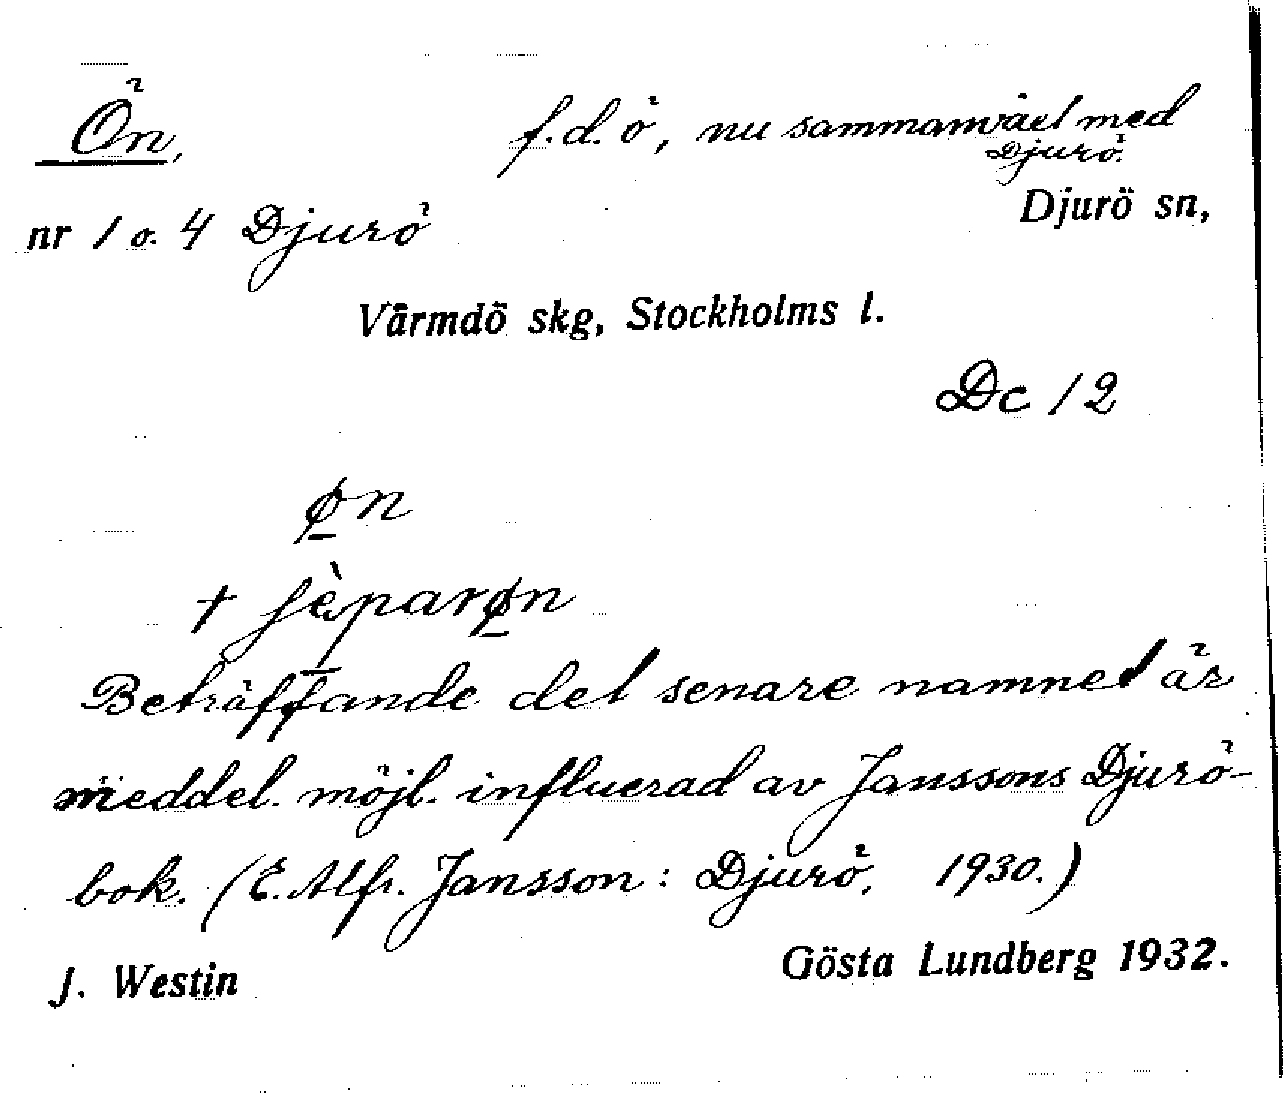 Ön, f.d. ö, nu sammanväxt med
Djurö.
nr 1 o. 4 Djurö Djurö sn,
Värmdö skg, Stockholms l.
Dc 12
øn
† ʃèparøn
Beträffande det senare namnet är
meddel. möjl. influerad av Janssons Djurö-
bok. (E. Alfr. Jansson: Djurö, 1930.)
J. Westin Gösta Lundberg 1932.